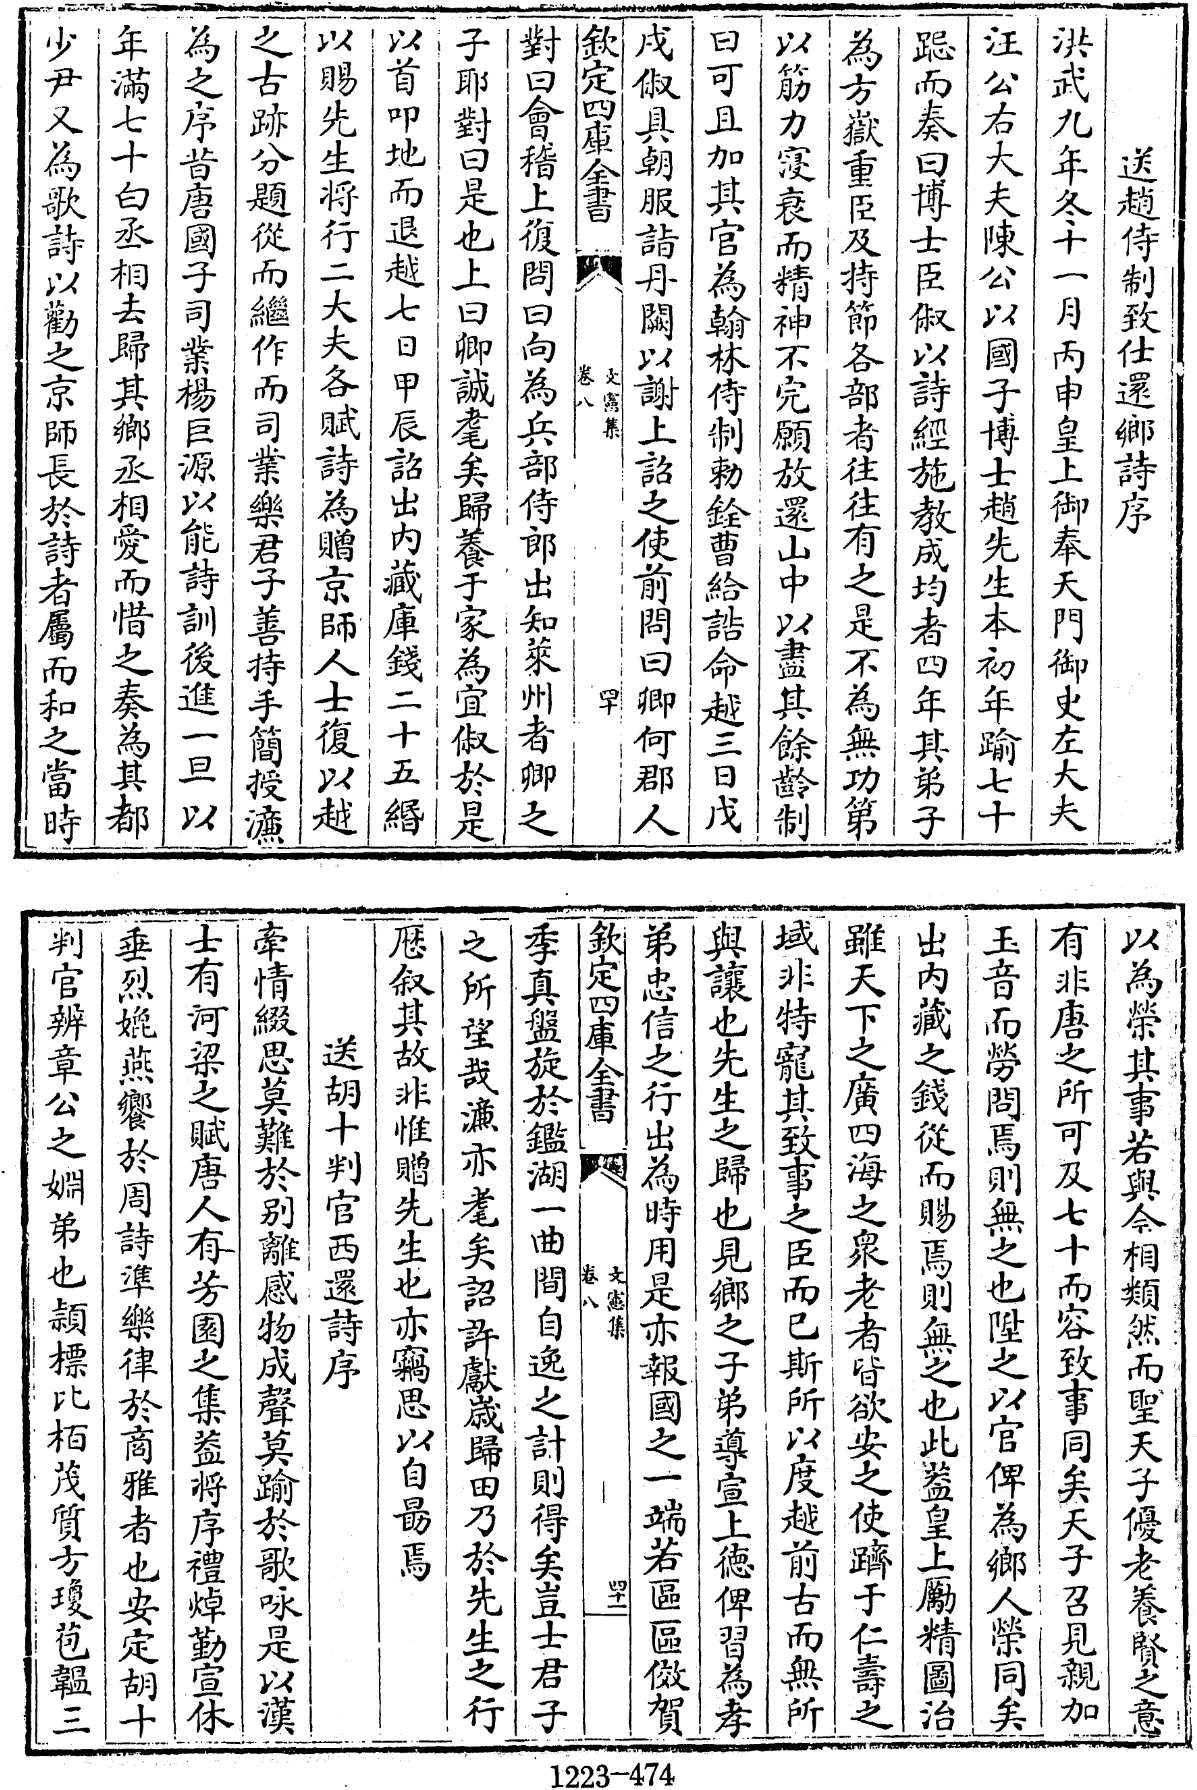 送趙侍制致仕還鄉詩序
洪武九年冬十一月丙申皇上御奉天門御史左大夫
汪公右大夫陳公以國子博士趙先生本初年踰七十
跽而奏曰博士臣俶以詩經施教成均者四年其弟子
為方嶽重臣及持節各部者往往有之是不為無功第
以筋力寖衰而精神不完願放還山中以盡其餘齡制
曰可且加其官為翰林侍制勅銓曹給誥命越三日戊
戍俶具朝服詣丹闕以謝上詔之使前問曰卿何郡人
欽定四庫全書
文憲集
卷八
四十
對曰會稽上復問曰向為兵部侍郎出知萊州者卿之
子耶對曰是也上曰卿誠耄矣歸養于家為宜俶於是
以首叩地而退越七日甲辰詔出内藏庫錢二十五緡
以賜先生將行二大夫各賦詩為贈京師人士復以越
之古跡分題從而繼作而司業樂君子善持手簡授濂
為之序昔唐國子司業楊巨源以能詩訓後進一旦以
年滿七十白丞相去歸其鄉丞相愛而惜之奏為其都
少尹又為歌詩以勸之京師長於詩者屬而和之當時
以為榮其事若與今相類然而聖天子優老養賢之意
有非唐之所可及七十而容致事同矣天子召見親加
玉音而勞問焉則無之也陞之以官俾為鄉人榮同矣
出内藏之錢從而賜焉則無之也此葢皇上厲精圖治
雖天下之廣四海之衆老者皆欲安之使躋于仁壽之
域非特寵其致事之臣而已斯所以度越前古而無所
與讓也先生之歸也見鄉之子弟導宣上徳俾習為孝
弟忠信之行出為時用是亦報國之一端若區區傚賀
欽定四庫全書
文憲集
卷八
四十一
季真盤旋於鑑湖一曲間自逸之計則得矣豈士君子
之所望哉濂亦耄矣詔許獻歲歸田乃於先生之行
厯叙其故非惟贈先生也亦竊思以自勗焉
送胡十判官西還詩序
牽情綴思莫難於别離感物成聲莫踰於歌咏是以漢
士有河梁之賦唐人有芳園之集葢將序禮焯勤宣休
垂烈媲燕饗於周詩準樂律於商雅者也安定胡十
判官辨章公之婣弟也頴標比栢茂質方瓊苞韞三
1223-474